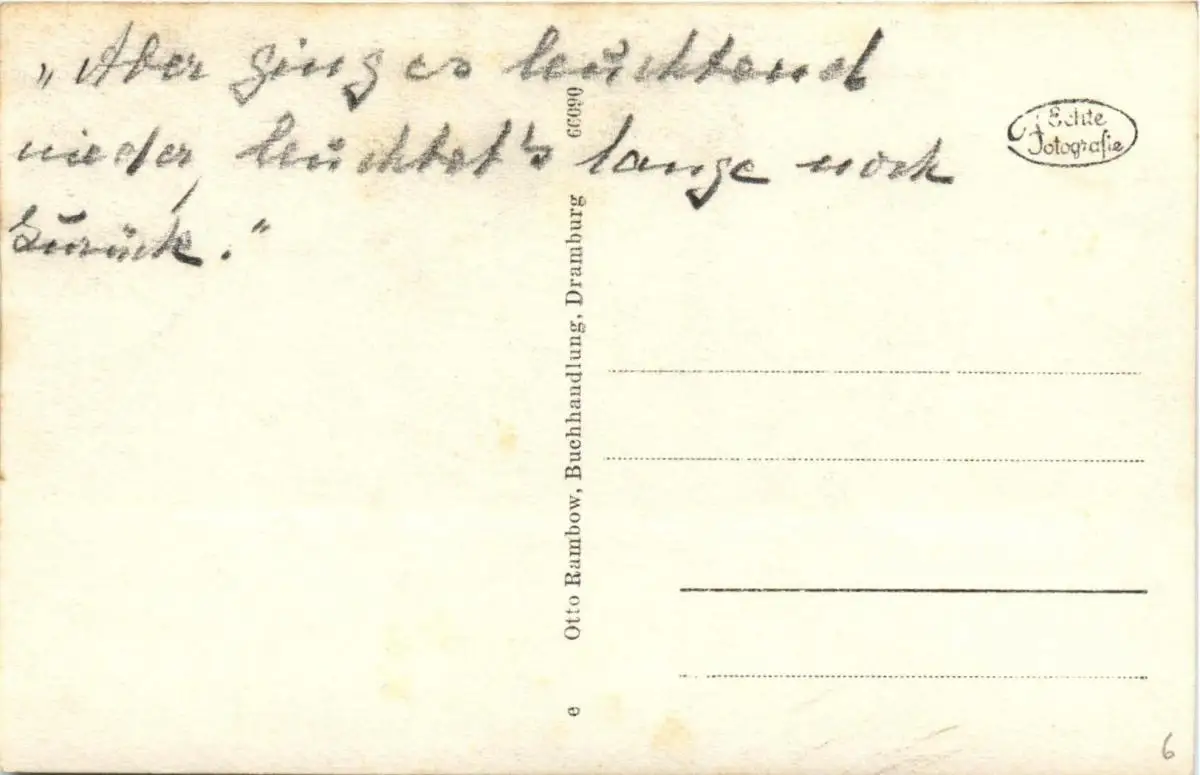 „Aber ging es leuchtend
nieder, leuchtet's lange noch
zurück."
Echte
Fotografie
e Otto Rambow, Buchhandlung, Dramburg 66090
6